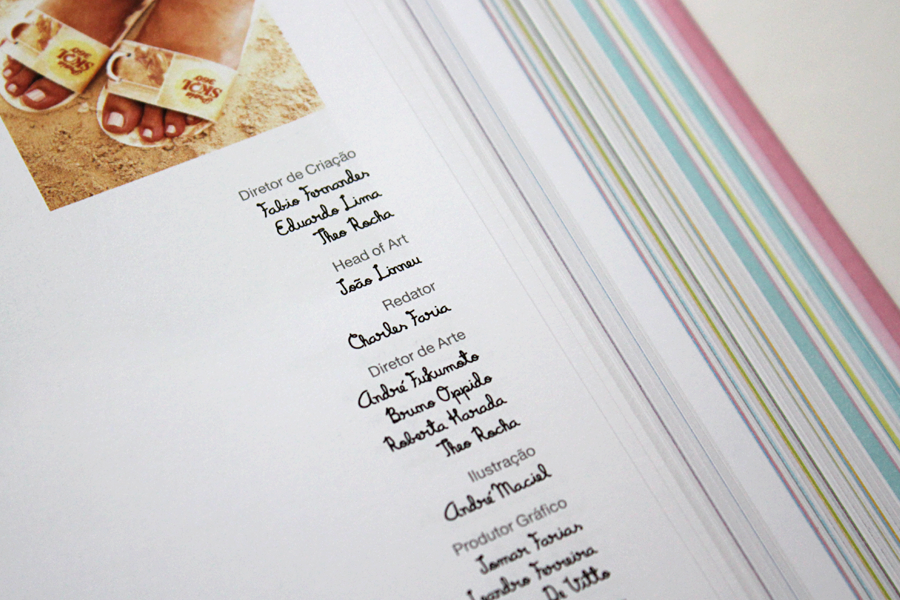 SKOL
SKOL
Diretor de Criação
Fabio Fernandes
Eduardo Lima
Theo Rocha
Head of Art
João Linneu
Redator
Charles Faria
Diretor de Arte
André Fukumoto
Bruno Oppido
Roberta Harada
Theo Rocha
Ilustração
André Maciel
Produtor Gráfico
Jomar Farias
Leandro Ferreira
De Vitto